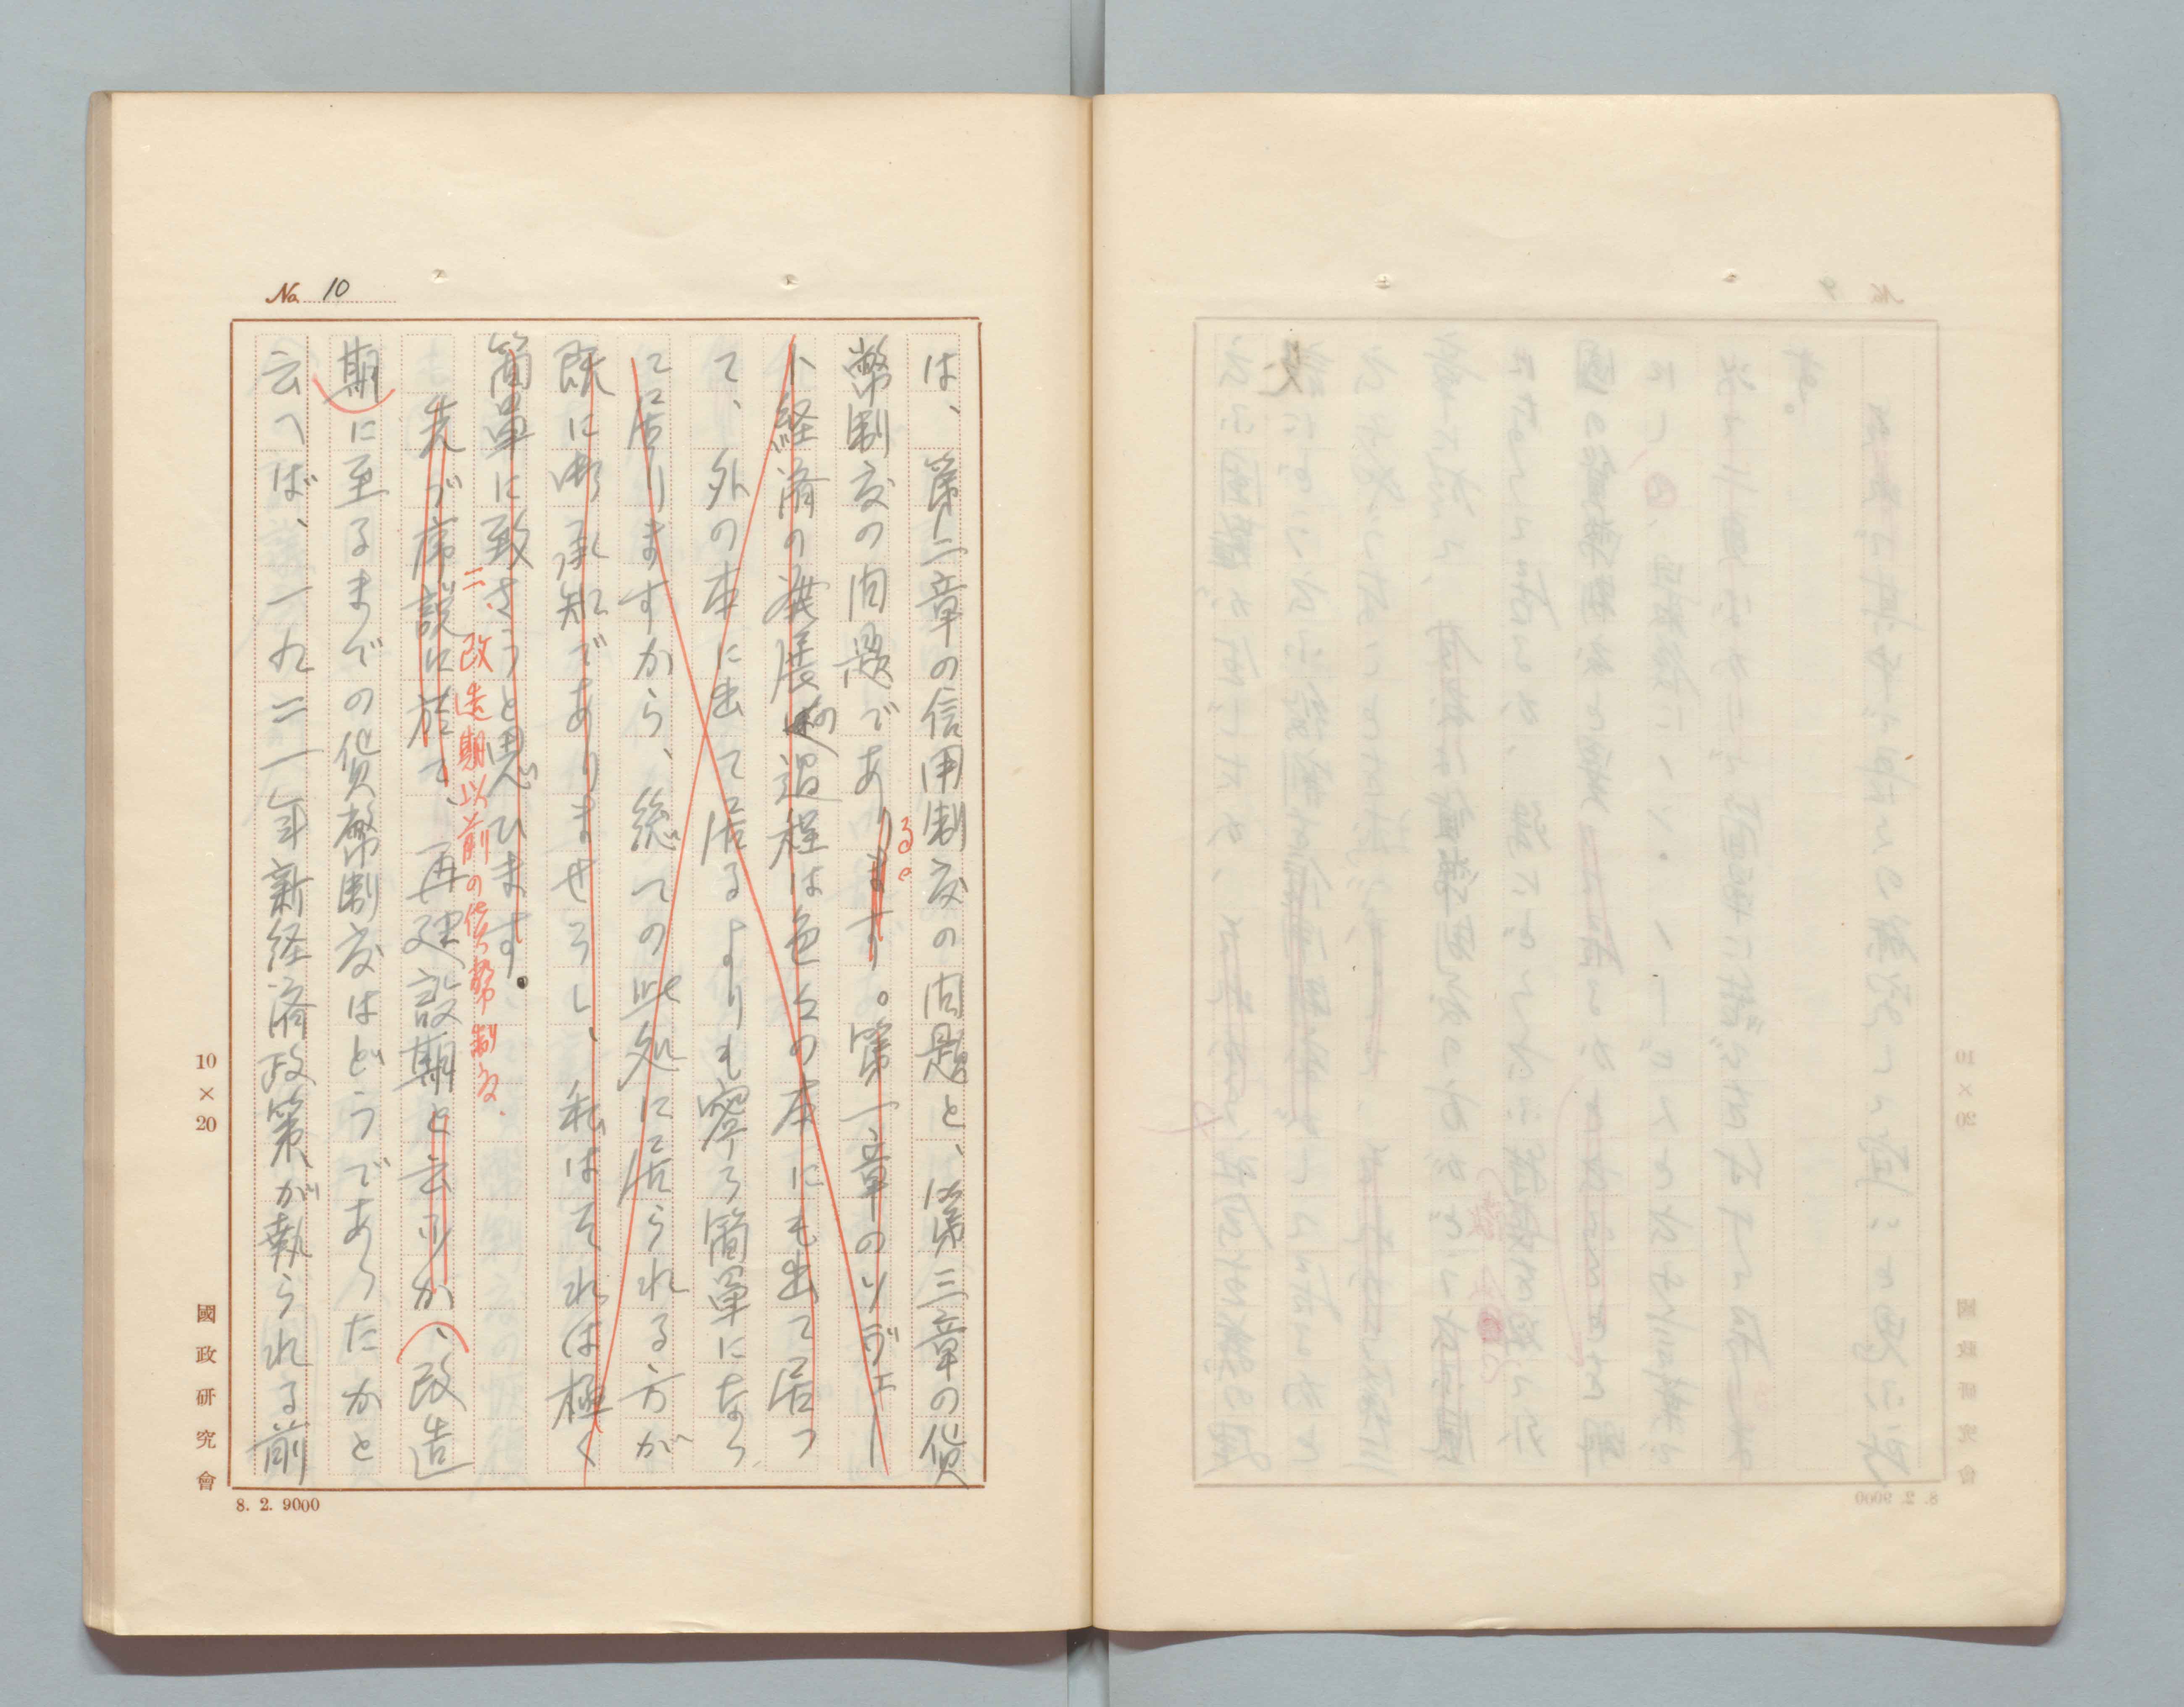 No. 10
は、第二章の信用制度の問題と、第三章の貨
幣制度の問題であります。第一章のソヴエー
る。
ト経済の発展の過程は色々の本にも出て居つ
て、外の本に出て居るよりも寧ろ簡単になつ
て居りますから、総ての此処に居られる方が
既に御承知でありませうし、私はそれは極く
簡単に致さうと思ひます。
二、改造期以前の貨幣制度.
先づ序説に於て、再建設期と云ふか、改造
期に至るまでの貨幣制度はどうであつたかと
云へば、一九二一年新経済政策が執られる前
10×20
國政研究會
8. 2. 9000